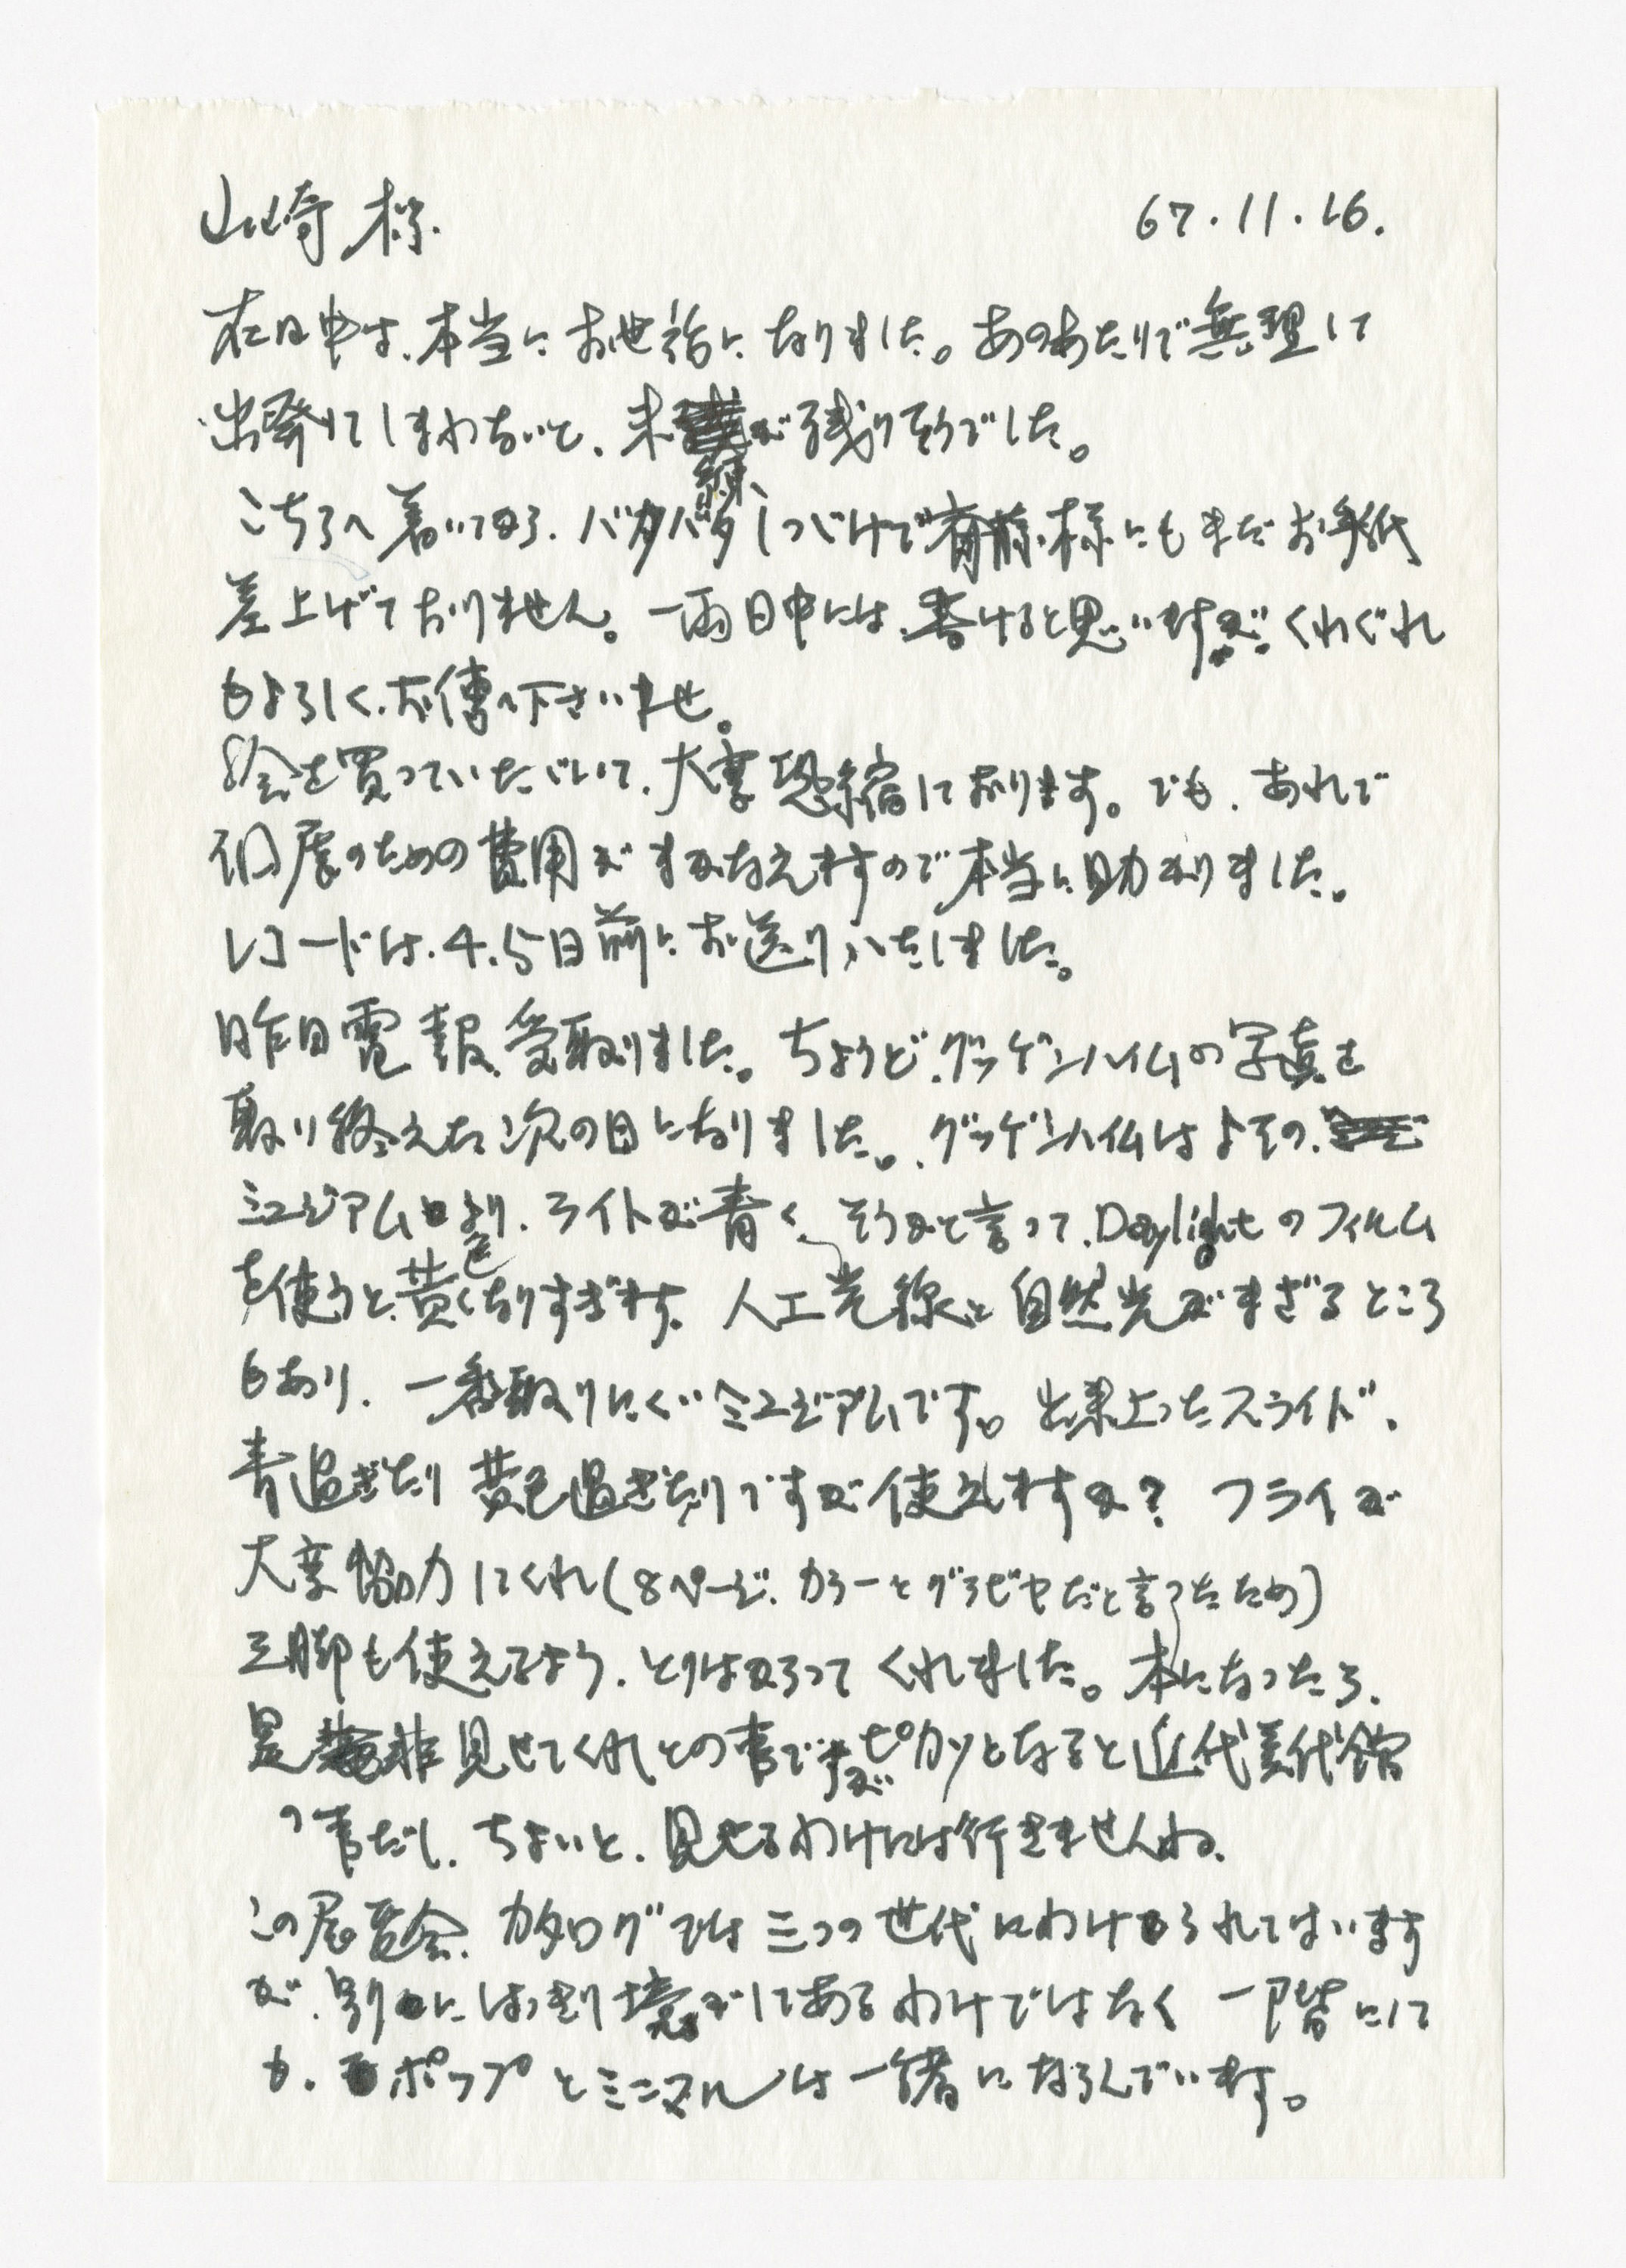 山崎様. 67.11.16.
在日中は、本当にお世話になりました。あのあたりで無理して
出発してしまわないと、未練が残りそうでした。
こちらへ着いてから、バタバタしつづけで斉藤様にもまだお手紙
差上げておりません。一両日中には、書けると思いますが、くれぐれ
もよろしく、お傳へ下さいませ。
絵を買っていただいて、大変恐縮しております。でも、あれで
個展のための費用がまかなえますので本当に助かりました。
レコードは、4、5日前にお送りいたしました。
昨日電報受取りました。ちょうど、グッゲンハイムの写真を
取り終えた次の日になりました。グッゲンハイムはよその、
ミュジアムより、ライトが青く、そうかと言って、Daylightのフィルム
を使うと、黄色くなりすぎます。人工光線と自然光がまざるところ
もあり、一番取りにくいミュジアムです。出来上ったスライド、
青過ぎたり黄色過ぎたりですが使えますか？フライが
大変協力してくれ(8ページ、カラーとグラビヤだと言ったため)
三脚も使えるよう、とりはからってくれました。本になったら、
是非見せてくれとの事ですがピカッとなると近代美代館
の事だし、ちょいと、見せるわけには行きませんね。
この展覧会、カタログでは三つの世代にわけられてはいます
が、別にはっきり境がしてあるわけではなく一階にして
も、ポップとミニマルは一緒にならんでいます。